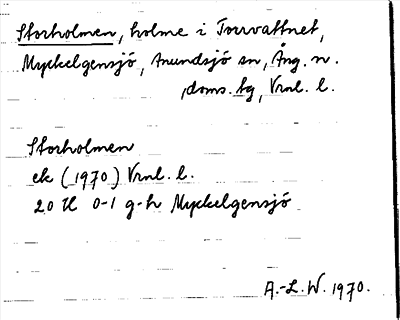 Storholmen, holme i Torrvattnet,
Myckelgensjö, Anundsjö sn, Ång. n.
doms. tg, Vrnl. l.
Storholmen
ek (1970) Vrnl. l.
20 H 0-1 g-h Myckelgensjö
A.-L. W. 1970.